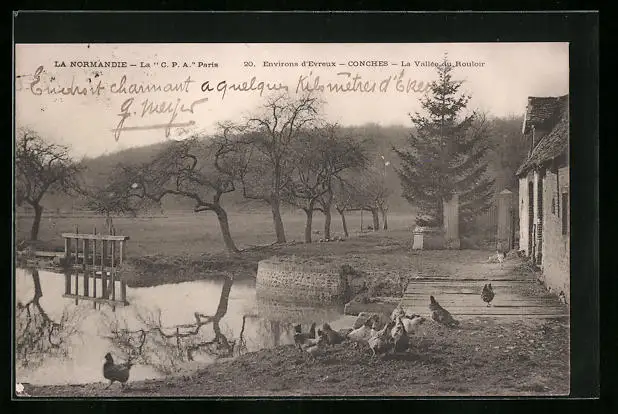 LA NORMANDIE — La "C. P. A." Paris 20. Environs d'Evreux — CONCHES — La Vallée du Rouloir
Endroit charmant à quelques kilomètres d'Evx
G. Meyer